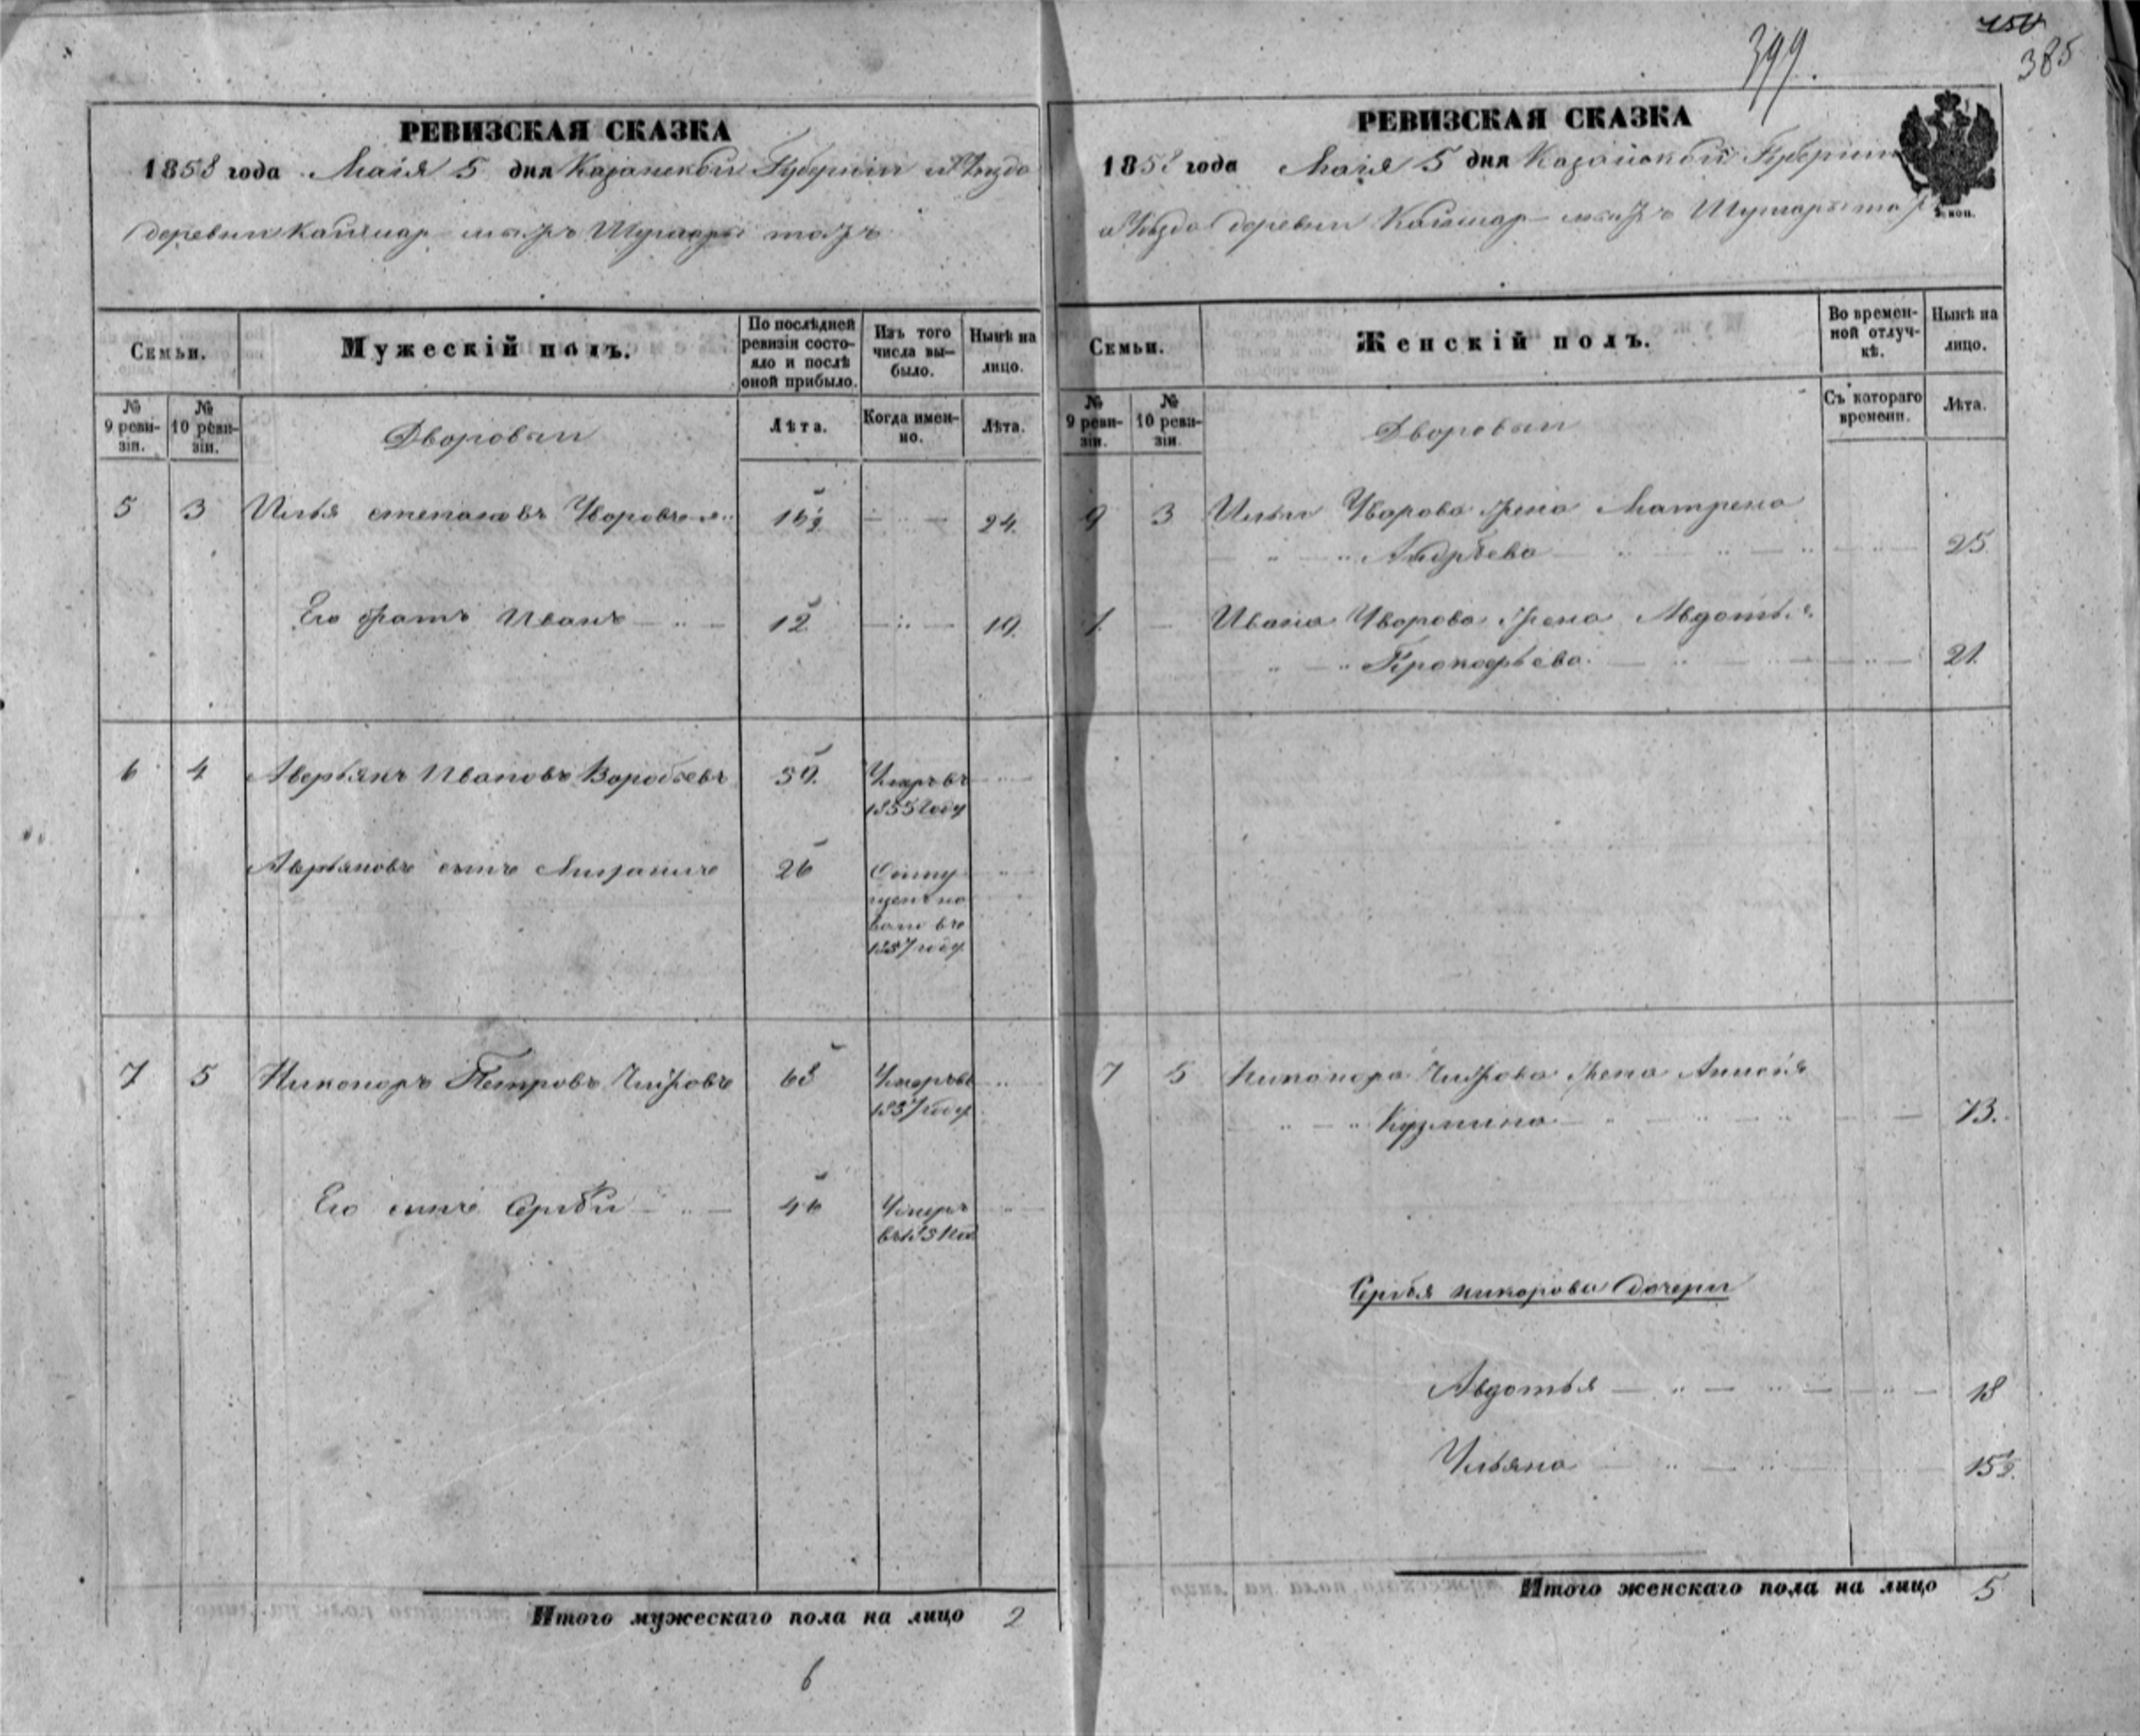 399.
385
РЕВИЗСКАЯ СКАЗКА
1858 года Маія 5 дня Казанской Губерніи и Уѣзда
деревни Каймар тожъ
Семьи.
Мужескій полъ.
По послѣдней ревизіи состояло и послѣ оной прибыло.
Изъ того числа вы-было.
Нынѣ на лицо.
№ 9 реви-зіи.
№ 10 реви-зіи.
Дворовыи
Лѣта.
Когда имен-но.
Лѣта.
5 3 Илья степановъ Уваровъ 16½ 24.
Его братъ Иванъ 12 19.
6 4 Аверьянъ Ивановъ Воробьевъ 59. Умеръ въ
1855 году
Аверьяновъ сынъ 26 Отпу
щенъ на
волю въ
1857 году
7 5 Никоноръ Петровъ 68 Умеръ въ
1857 году
Его сынъ Сергѣй 46 Умеръ
Итого мужескаго пола на лицо 2
6
РЕВИЗСКАЯ СКАЗКА
1858 года Маія 5 дня Казанской Губерніи
и Уѣзда деревни Каймар тожъ
коп.
Семьи.
Женскій полъ.
Во времен-ной отлуч-кѣ.
Нынѣ на лицо.
№ 9 реви-зіи.
№ 10 реви-зіи.
Дворовыи
Съ катораго времени.
Лѣта.
9 3 Ильи Уварова жена Матрена
Андрѣева 25.
Ивана Уварова жена Авдотья
Прокофьева 21.
7 5 Никонора жена
Кузмина 73.
Сергѣя дочери
Авдотья 18
Ульяна 15½.
Итого женскаго пола на лицо 5